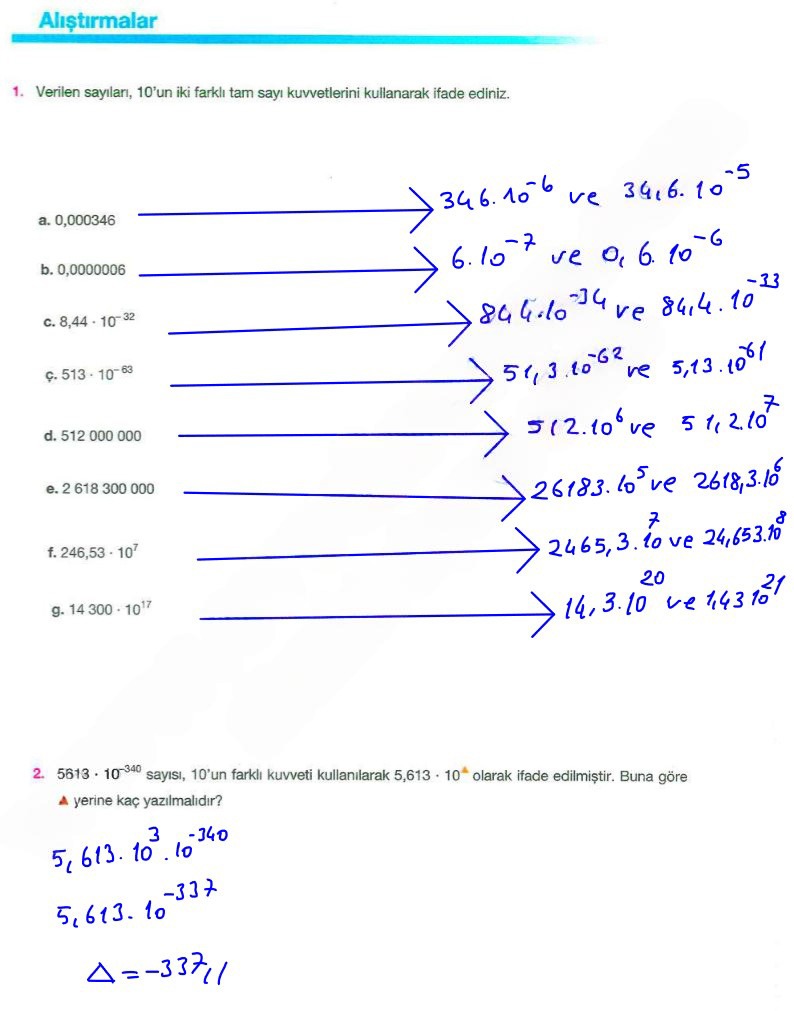 Alıştırmalar
1. Verilen sayıları, 10'un iki farklı tam sayı kuvvetlerini kullanarak ifade ediniz.
a. 0,000346 346.10⁻⁶ ve 34,6.10⁻⁵
b. 0,0000006 6.10⁻⁷ ve 0,6.10⁻⁶
c. 8,44 · 10⁻³² 844.10⁻³⁴ ve 84,4.10⁻³³
ç. 513 · 10⁻⁶³ 51,3.10⁻⁶² ve 5,13.10⁻⁶¹
d. 512 000 000 512.10⁶ ve 51,2.10⁷
e. 2 618 300 000 26183.10⁵ ve 2618,3.10⁶
f. 246,53 · 10⁷ 2465,3.10⁷ ve 24,653.10⁸
g. 14 300 · 10¹⁷ 14,3.10²⁰ ve 1,43 10²¹
2. 5613 · 10⁻³⁴⁰ sayısı, 10'un farklı kuvveti kullanılarak 5,613 · 10▲ olarak ifade edilmiştir. Buna göre
▲ yerine kaç yazılmalıdır?
5,613.10³.10⁻³⁴⁰
5,613.10⁻³³⁷
Δ = -337//